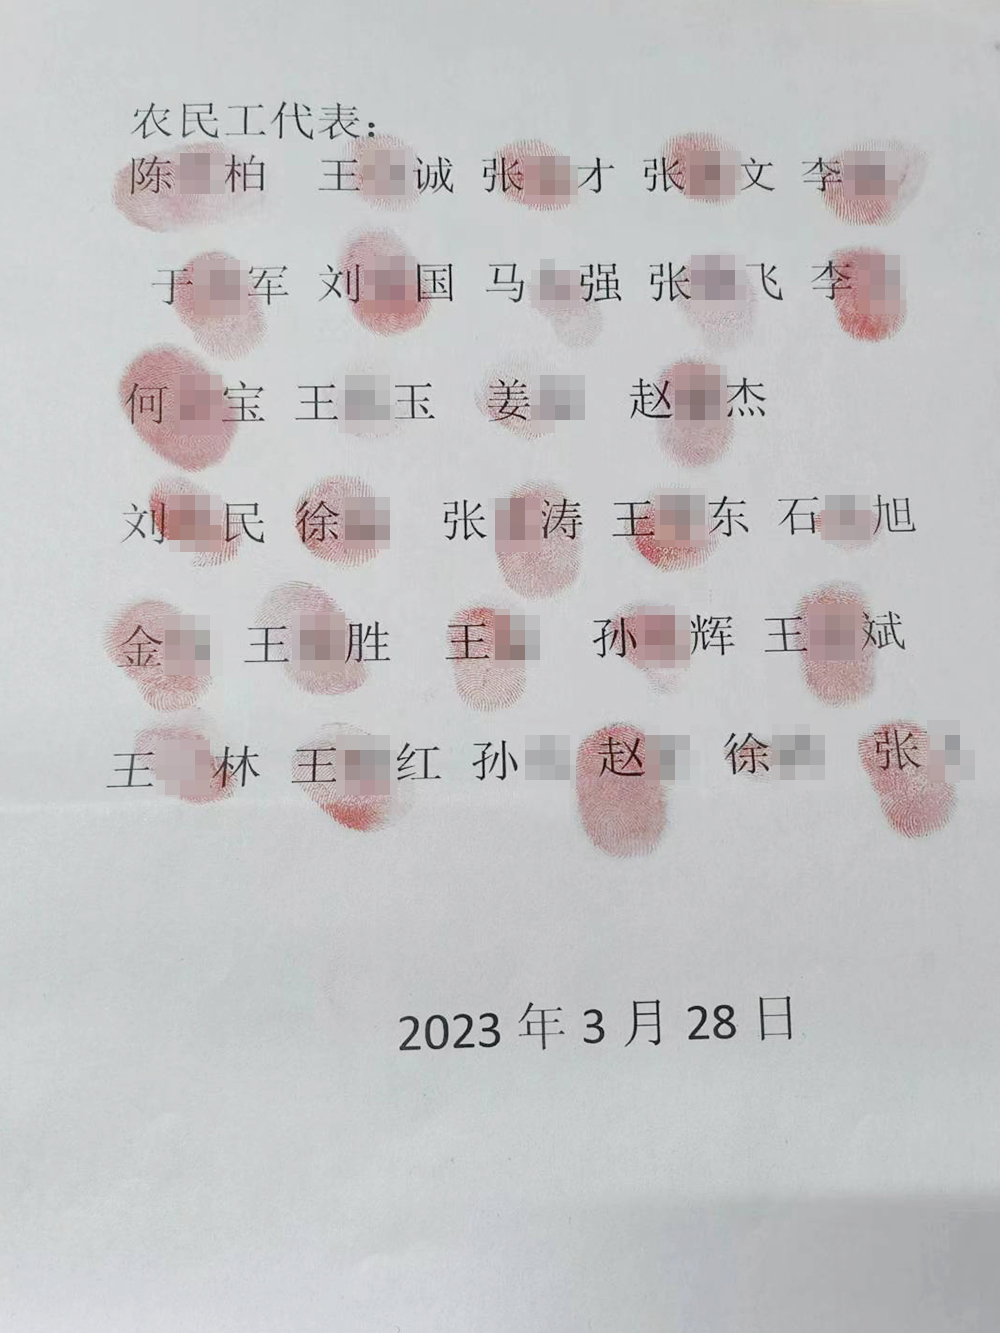 农民工代表：
陈 柏 王 诚 张 才 张 文 李
于 军 刘 国 马 强 张 飞 李
何 宝 王 玉 姜 赵 杰
刘 民 徐 张 涛 王 东 石 旭
金 王 胜 王 孙 辉 王 斌
王 林 王 红 孙 赵 徐 张
2023 年 3 月 28 日